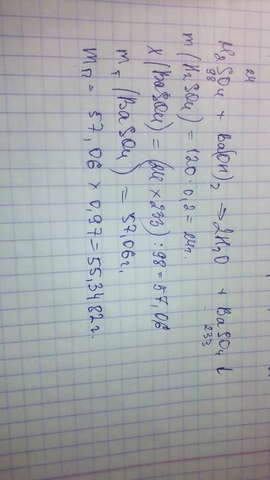 24
H₂SO₄ + Ba(OH)₂ ⇒ 2H₂O + BaSO₄↓
98 233
m(H₂SO₄) = 120 · 0,2 = 24г.
X(BaSO₄) = (24 × 233) : 98 = 57,06
mт (BaSO₄) = 57,06г,
mп = 57,06 × 0,97 = 55,3482г.